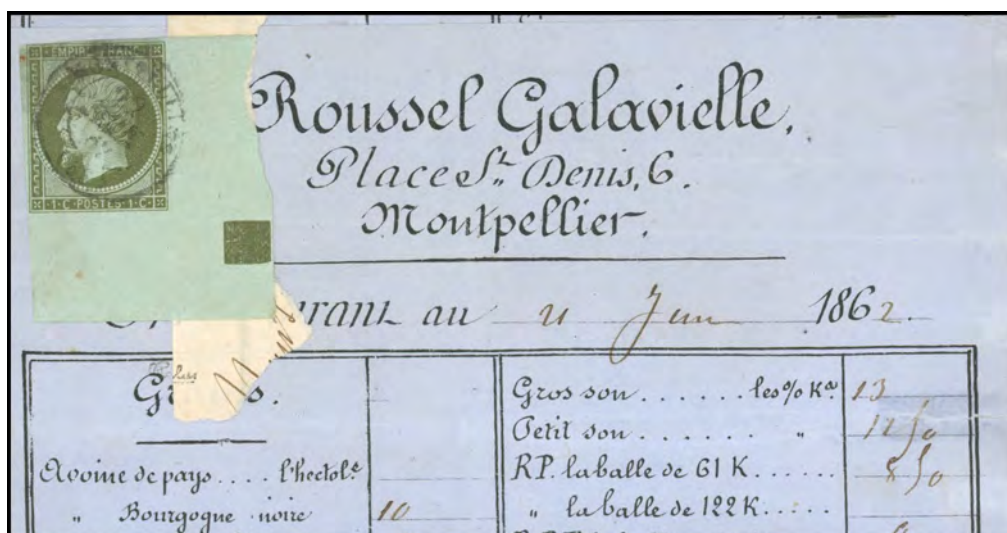 EMPIRE FRANC
1·C·POSTES·1·C
Roussel Galavielle.
Place St. Denis, 6.
Montpellier.
urant au 21 Juin 1862.
Gros son . . . . . . les % Kos 13
Petit son . . . . . . " 12 50
Avoine de pays . . . . l'hectole
R.P. la balle de 61 K . . . . . 8 50
" Bourgogne noire 10
" la balle de 122 K . . . . .